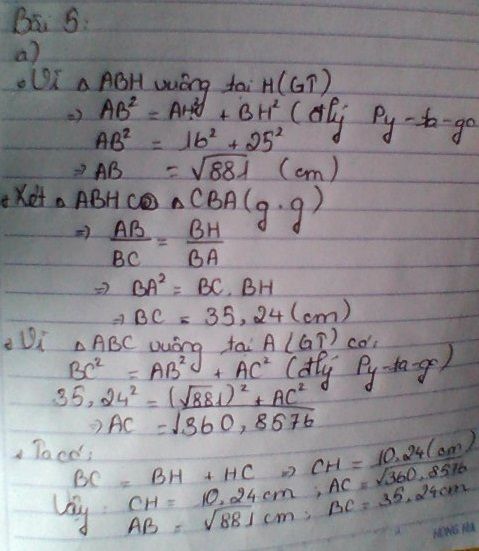 Bài 5:
a)
• Vì △ ABH vuông tại H (GT)
⇒ AB² = AH² + BH² (đlý Py-ta-go
AB² = 16² + 25²
⇒ AB = √881 (cm)
• Xét △ ABH ∽ △ CBA (g.g)
⇒ AB/BC = BH/BA
⇒ BA² = BC . BH
⇒ BC = 35,24 (cm)
• Vì △ ABC vuông tại A (GT) có:
BC² = AB² + AC² (đlý Py-ta-go)
35,24² = (√881)² + AC²
⇒ AC = √360,8576
• Ta có:
BC = BH + HC ⇒ CH = 10,24 (cm)
Vậy: CH = 10,24 cm ; AC = √360,8576
AB = √881 cm ; BC = 35,24 cm
HỒNG HÀ